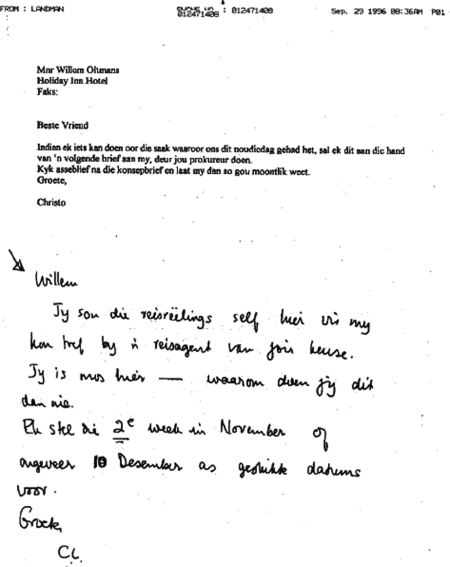 FROM : LANDMAN
012471408 : 012471408 Sep. 29 1996 08:36AM P01
Mnr Willem Oltmans
Holiday Inn Hotel
Faks:
Beste Vriend
Indien ek iets kan doen oor die saak waaroor ons dit noudiedag gehad het, sal ek dit aan die hand
van 'n volgende brief aan my, deur jou prokureur doen.
Kyk asseblief na die konsepbrief en laat my dan so gou moontlik weet.
Groete,
Christo
Willem
Jy sou die reisreëlings self hier vir my
kon tref by 'n reisagent van jou keuse.
Jy is mos hier — waarom doen jy dit
dan nie.
Ek stel die 2e week in November of
ongeveer 10 Desember as geskikte datums
voor.
Groete,
CL.